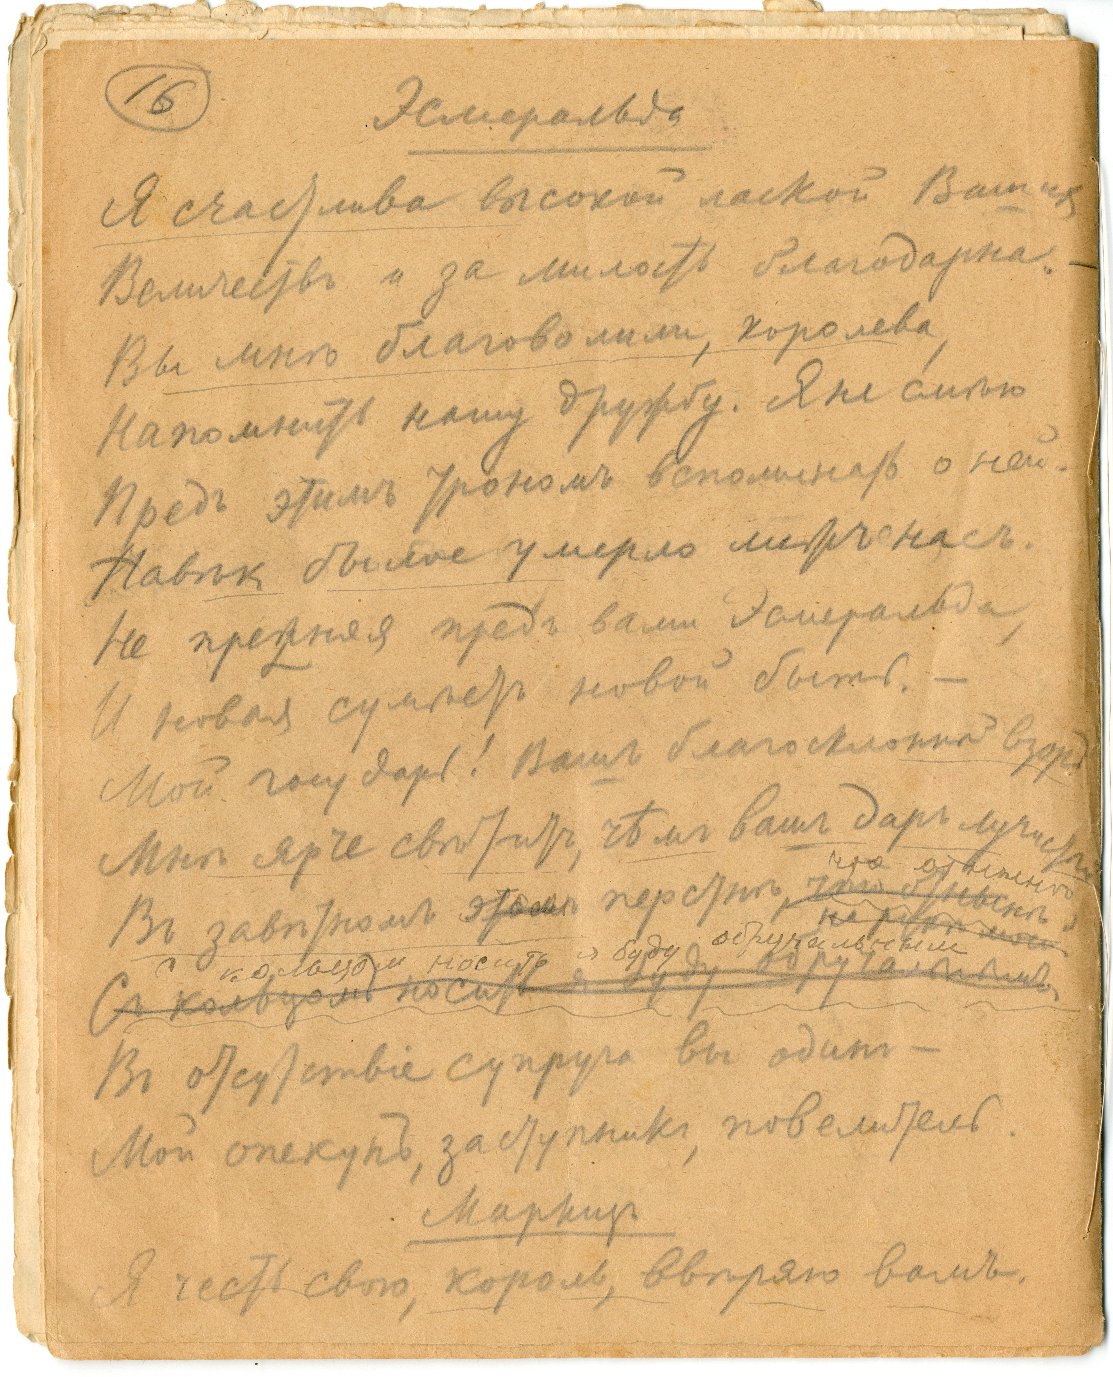 16
Эсмеральда
Я счастлива высокой лаской Вашихъ
Величествъ и за милость благодарна. —
Вы мнѣ благоволили, королева,
Напомнить нашу дружбу. Я не смѣю
Предъ этимъ трономъ вспоминать о ней.
Навѣк былое умерло межъ насъ.
Не прежняя предъ вами Эсмеральда,
И новая сумѣетъ новой быть. —
Мой государь! Вашъ благосклонный взоръ
Мнѣ ярче свѣтитъ, чѣмъ вашъ даръ лучистый
что отмѣнно
Въ завѣтномъ этомъ перстнѣ,
на рукѣ моей
С кольцом носить я буду обручальным
Съ кольцомъ носить я буду обручальнымъ
Въ отсутствіе супруга вы одинъ —
Мой опекунъ, заступникъ, повелитель.
Маркизъ
Я честь свою, король, ввѣряю вамъ.